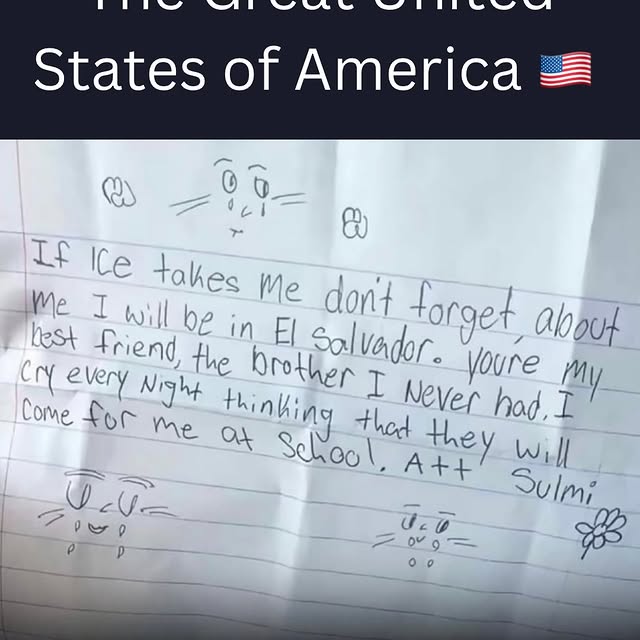 The Great United
States of America 🇺🇸
If Ice takes me don't forget about
me I will be in El Salvador. Youre my
best friend, the brother I Never had. I
cry every Night thinking that they will
come for me at School. Att Sulmi